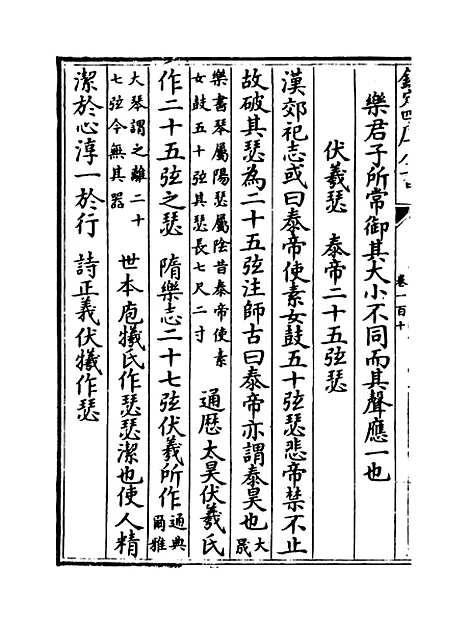 卷一百十
樂君子所常御其大小不同而其聲應一也
伏羲瑟　泰帝二十五弦瑟
漢郊祀志或曰泰帝使素女鼓五十弦瑟悲帝禁不止
故破其瑟為二十五弦注師古曰泰帝亦謂泰昊也大晟
樂書琴屬陽瑟屬陰昔泰帝使素女鼓五十弦其瑟長七尺二寸　通歷太昊伏羲氏
作二十五弦之瑟　隋樂志二十七弦伏羲所作通典爾雅
大琴謂之離二十七弦今無其器　世本庖犧氏作瑟瑟潔也使人精
潔於心淳一於行　詩正義伏犧作瑟